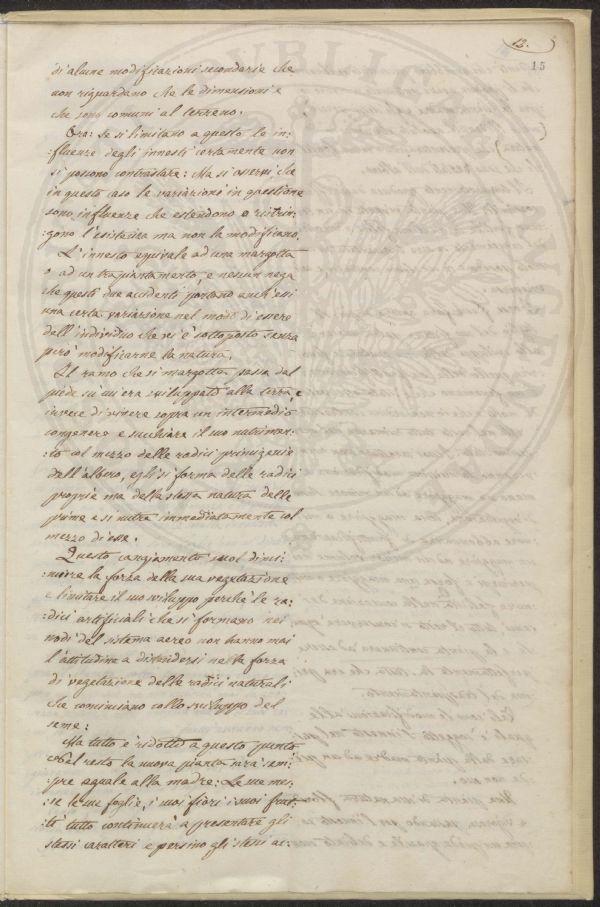 13.
15
di alcune modificazioni secondarie che
non riguardano che le dimensioni e
che sono comuni al terreno.
Ora: se si limitano a questo le in-
:fluenze degli innesti certamente non
si possono contrastare: Ma si osservi che
in questo caso le variazioni in questione
sono influenze che estendono o ristrin-
:gono l'esistenza ma non la modificano.
L'innesto equivale ad una margotta
o ad un trapiantamento, e nessun nega
che questi due accidenti portano anch'essi
una certa variazione nel modo di essere
dell'individuo che vi è sottoposto senza
però modificarne la natura.
Il ramo che si margotta passa dal
piede su cui era sviluppato alla terra, e
invece di vivere sopra un intermedio
congenere e succhiare il suo nutrimen-
:to col mezzo delle radici primigenie
dell'albero, egli si forma delle radici
proprie ma della stessa natura delle
prime e si nutre immediatamente col
mezzo di esse.
Questo cangiamento suol dimi-
:nuire la forza della sua vegetazione
e limitare il suo sviluppo perchè le ra-
:dici artificiali che si formano nei
nodi del sistema aereo non hanno mai
l'attitudine a distendersi nella forza
di vegetazione delle radici naturali
che cominciano collo sviluppo del
seme:
Ma tutto è ridotto a questo punto
e del resto la nuova pianta sarà sem-
:pre eguale alla madre: Le sue mes-
:se le sue foglie, i suoi fiori i suoi frut-
:ti tutto continuerà a presentare gli
stessi caratteri e persino gli stessi ac: